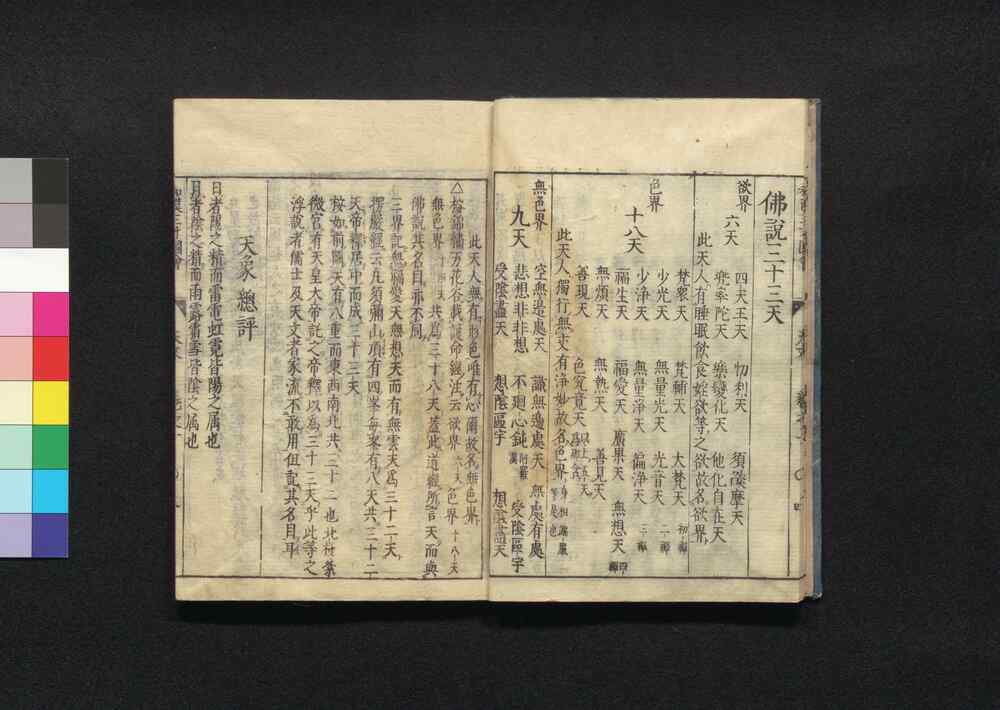 佛說三十三天
欲界
六天
四天王天 忉利天 須燄摩天
兜率陀天 樂變化天 他化自在天
此天人有睡眠飲食婬欲等之欲故名欲界
色界
十八天
梵衆天 梵輔天 大梵天 初禪
少光天 無量光天 光音天 二禪
少淨天 無量淨天 徧淨天 三禪
福生天 福愛天 廣果天 無想天 四禪
無煩天 無熱天 善見天
善現天 色究竟天
此天人獨行無交有淨妙故名色界
無色界
九天
空無邊處天 識無邊處天 無處有處
悲想非非想 不廻心鈍 阿羅漢 受陰區宇
受陰盡天 想陰區宇 想陰盡天
此天人無有形色唯有心爾故名無色界
無色界 共爲三十八天蓋此道觀所言天而與
佛說其名目亦不同
三界記無福愛天無想天而有無雲天爲三十二天
楞嚴經云凡須彌山頂有四峯每峯有八天共三十二
天帝釋居中而成三十三天
按如前圖天有八重而東西南北共三十二也北極紫
微宮有天皇大帝託之帝釋以爲三十三天乎此等之
浮說者儒士及天文者家流不敢用但記其名目耳
天象總評
日者陽之精而雷電虹霓皆陽之屬也
月者陰之精而雨露霜雪皆陰之屬也